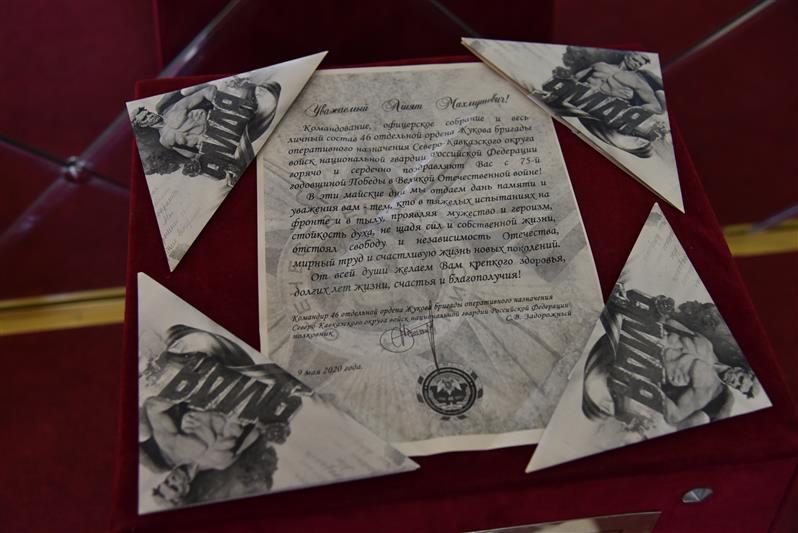 Уважаемый Ашят Махмутович!
Командование, офицерское собрание и весь
личный состав 46 отдельной ордена Жукова бригады
оперативного назначения Северо-Кавказского округа
войск национальной гвардии Российской Федерации
горячо и сердечно поздравляют Вас с 75-й
годовщиной Победы в Великой Отечественной войне!
В эти майские дни мы отдаем дань памяти и
уважения вам - тем, кто в тяжелых испытаниях на
фронте и в тылу, проявляя мужество и героизм,
стойкость духа, не щадя сил и собственной жизни,
отстоял свободу и независимость Отечества,
мирный труд и счастливую жизнь новых поколений.
От всей души желаем Вам крепкого здоровья,
долгих лет жизни, счастья и благополучия!
Командир 46 отдельной ордена Жукова бригады оперативного назначения
Северо-Кавказского округа войск национальной гвардии Российской Федерации
полковник С.В. Задорожный
9 мая 2020 года.